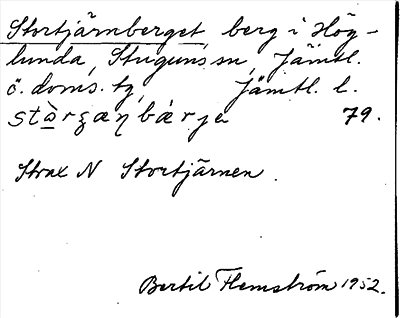 Stortjärnberget berg i Hög-
lunda, Stuguns sn, Jämtl.
ö. doms. tg, Jämtl. l.
79.
Strax N Stortjärnen.
Bertil Flemström 1952.